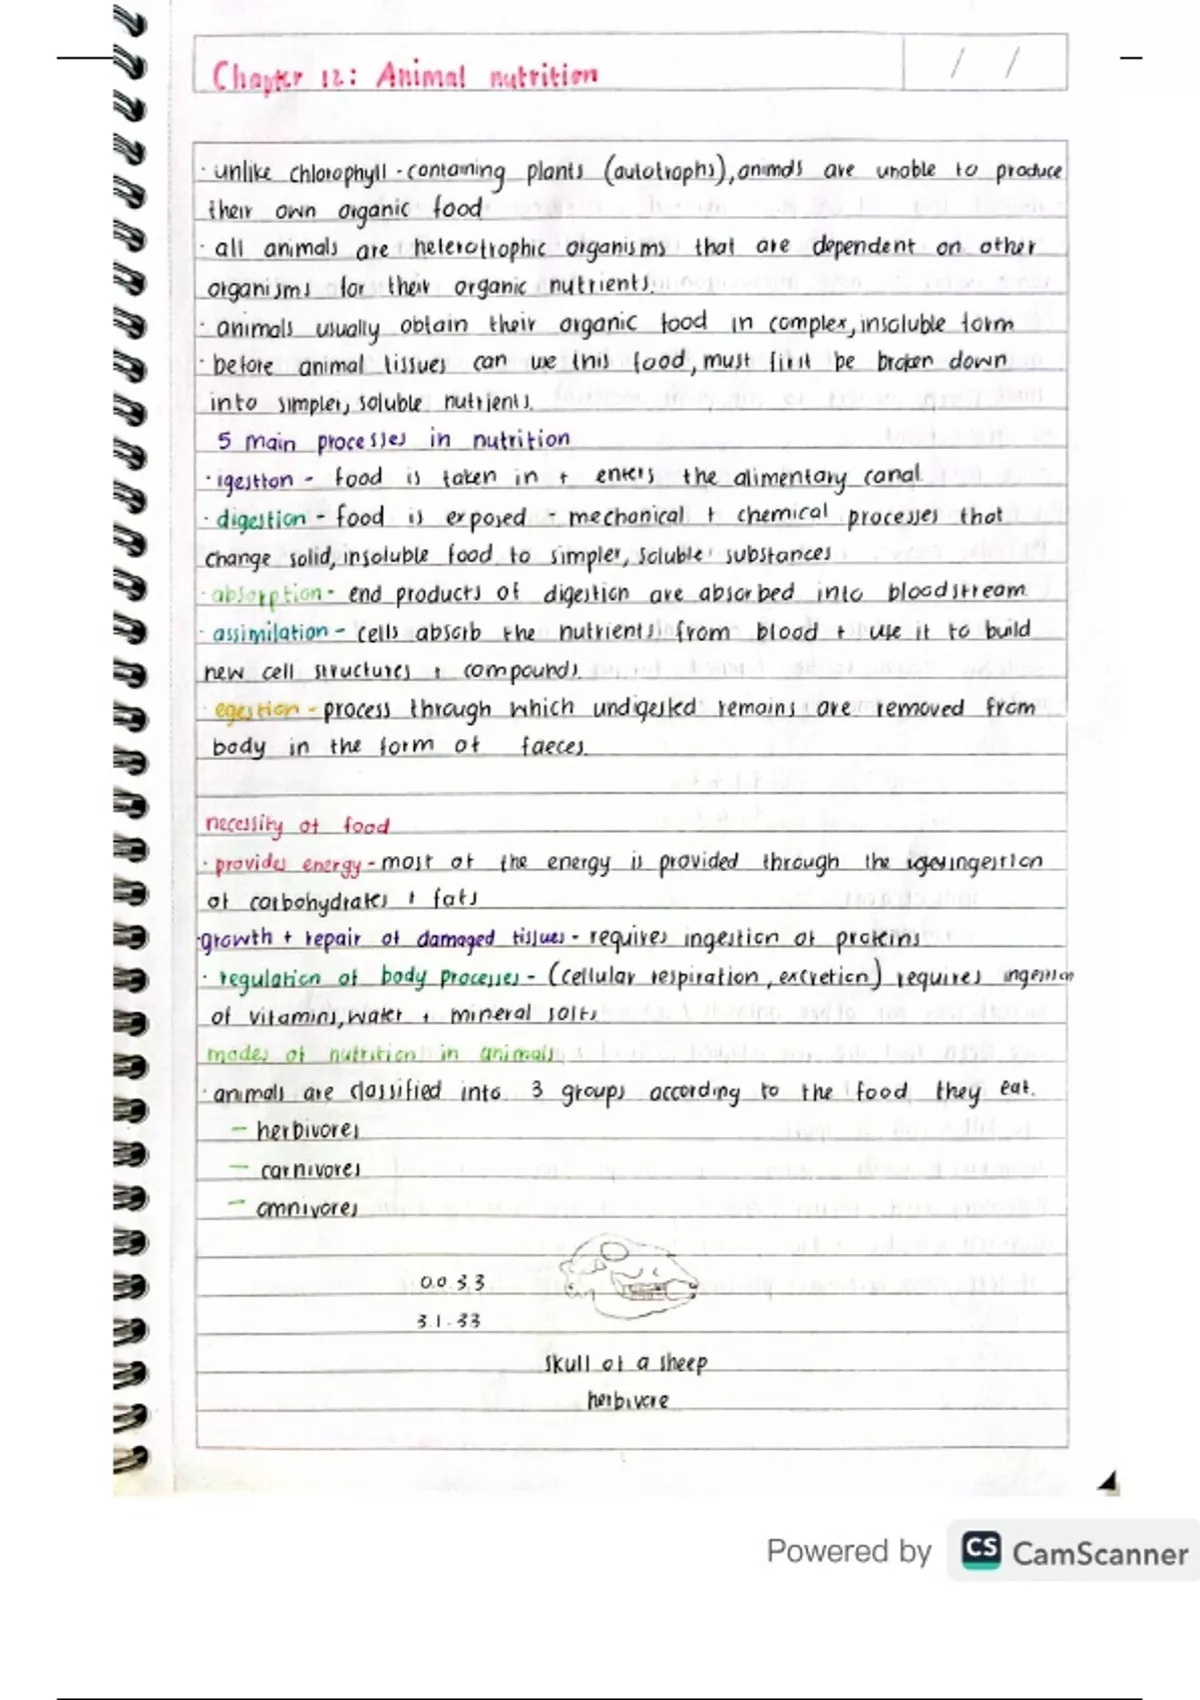 Chapter 12: Animal nutrition
/ /
· unlike chlorophyll - containing plants (autotrophs), animals are unable to produce
their own organic food
· all animals are heterotrophic organisms that are dependent on other
organisms for their organic nutrients.
· animals usually obtain their organic food in complex, insoluble form
· before animal tissues can use this food, must first be broken down
into simpler, soluble nutrients.
5 main processes in nutrition
· igestion - food is taken in + enters the alimentary canal
· digestion - food is exposed - mechanical + chemical processes that
change solid, insoluble food to simpler, soluble substances
· absorption - end products of digestion are absorbed into bloodstream
· assimilation - cells absorb the nutrients from blood + use it to build
new cell structures + compounds.
· egestion - process through which undigested remains are removed from
body in the form of faeces.
necessity of food
· provides energy - most of the energy is provided through the ingestion
of carbohydrates + fats
· growth + repair of damaged tissues - requires ingestion of proteins
· regulation of body processes - (cellular respiration, excretion) requires ingestion
of vitamins, water + mineral salts
modes of nutrition in animals
· animals are classified into 3 groups according to the food they eat.
- herbivores
- carnivores
- omnivores
0.0.3.3
3.1.33
skull of a sheep
herbivore
Powered by CS CamScanner